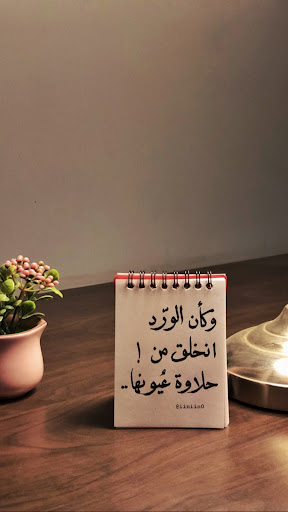 وكأن الورّد
انخلق من !
حلاوة عُيونها..